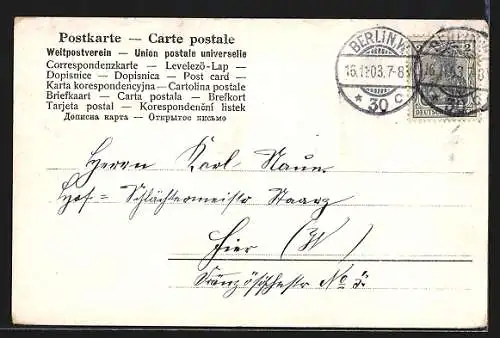 Postkarte — Carte postale
Weltpostverein — Union postale universelle
Correspondenzkarte — Levelező-Lap —
Dopisnice — Dopisnica — Post card —
Karta korespondencyjna — Cartolina postale
Briefkaart — Carta postala — Brefkort
Tarjeta postal — Korespondenční listek
Дописна карта — Открытое письмо
BERLIN.W.
16.11.03.7-8
* 30 c
2
Herrn Karl
Hof = Schlächtermeister
Hier (W)
Französischestr No